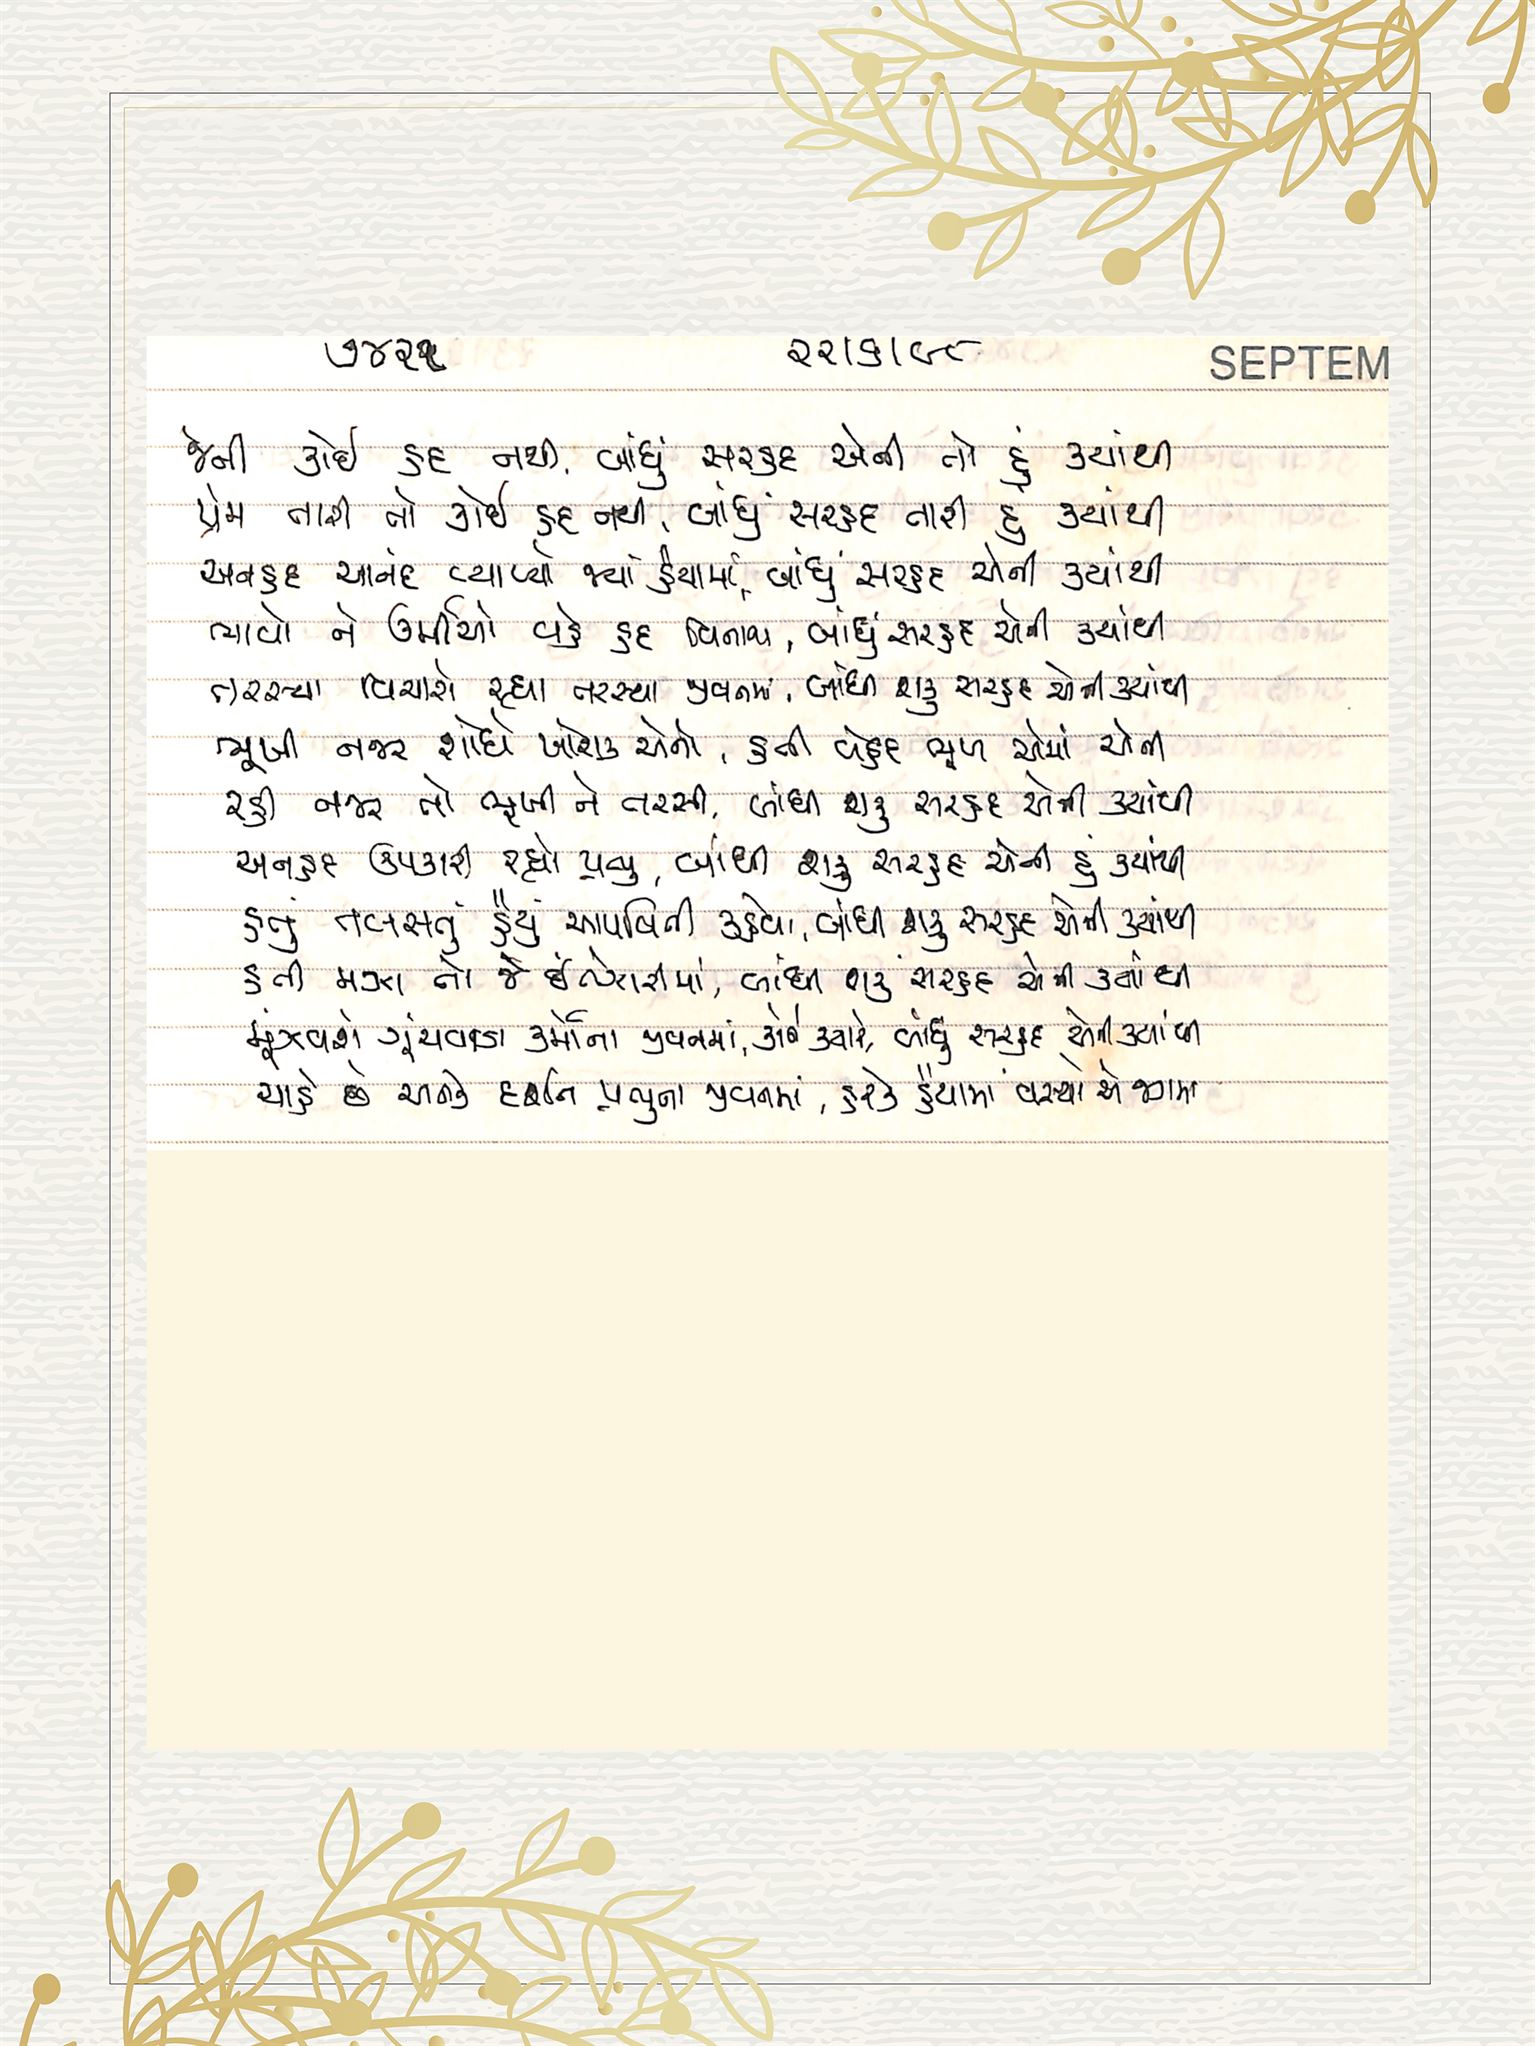 ૭૪૨૨ ૨૨/૬/૯૮ SEPTEM
જેની કોઈ હદ નથી, બાંધું સરહદ એની તો હું ક્યાંથી
પ્રેમ તારી તો કોઈ હદ નથી, બાંધું સરહદ તારી હું ક્યાંથી
અનહદ આનંદ વ્યાપ્યો જ્યાં હૈયામાં, બાંધું સરહદ એની ક્યાંથી
ભાવો ને ઉર્મીઓ વહે હદ વિનાના, બાંધું સરહદ એની ક્યાંથી
તરસ્યા વિચારો રહ્યા તરસ્યા જીવનમાં, બાંધી શકું સરહદ એની ક્યાંથી
ભૂખી નજર શોધે ખોરાક એનો, હતી બેહદ ભૂખ એમાં એની
રહી નજર તો ભૂખી ને તરસી, બાંધી શકું સરહદ એની ક્યાંથી
અનહદ ઉપકારી રહ્યો પ્રભુ, બાંધી શકું સરહદ એની હું ક્યાંથી
હતું તલસતું હૈયું આપવિતી કહેવા, બાંધી શકું સરહદ એની ક્યાંથી
હતી મજા તો જે ઈંતેજારીમાં, બાંધી શકું સરહદ એની ક્યાંથી
મૂંઝવશે ગૂંચવાડા કર્મોના જીવનમાં, કોઈ ક્યારે, બાંધું સરહદ એની ક્યાંથી
ચાહે છે અનેક દર્શન પ્રભુના જીવનમાં, હરેક હૈયામાં વસ્યો એ જગમાં